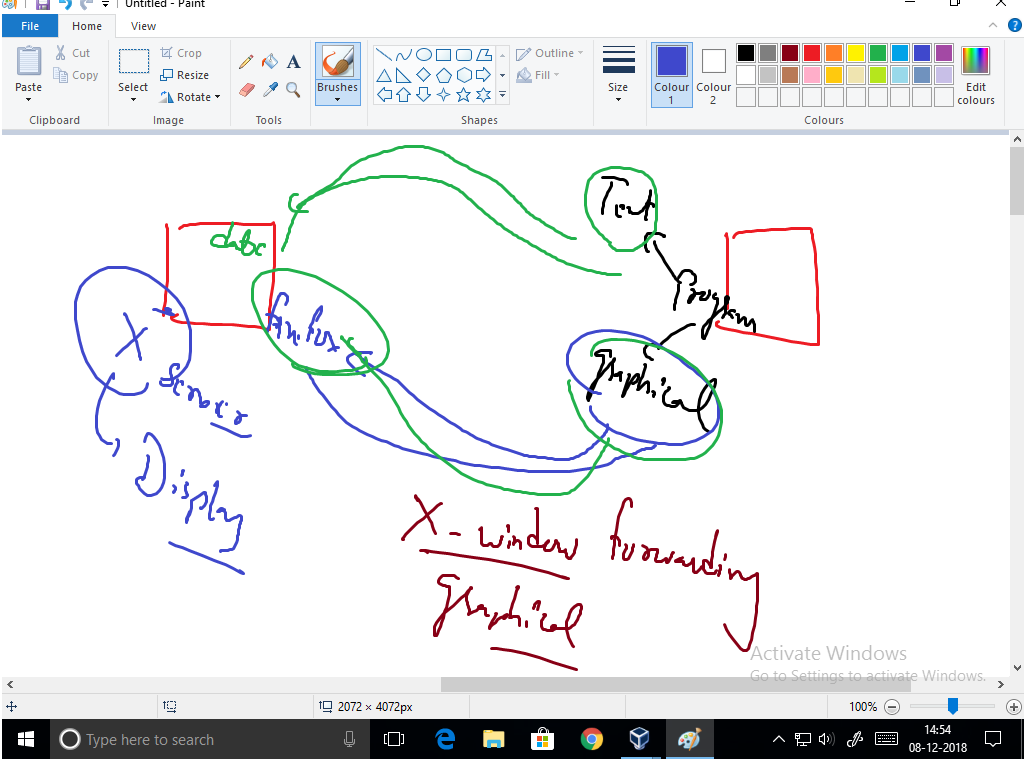 Untitled - Paint
File
Home
View
Paste
Cut
Copy
Clipboard
Select
Crop
Resize
Rotate
Image
A
Tools
Brushes
Shapes
Outline
Fill
Size
Colour
1
Colour
2
Edit
colours
Colours
Text
date
Program
X
firefox
Graphical
Server
Display
X-window forwarding
Graphical
Activate Windows
Go to Settings to activate Windows.
2072 × 4072px
100%
Type here to search
14:54
08-12-2018